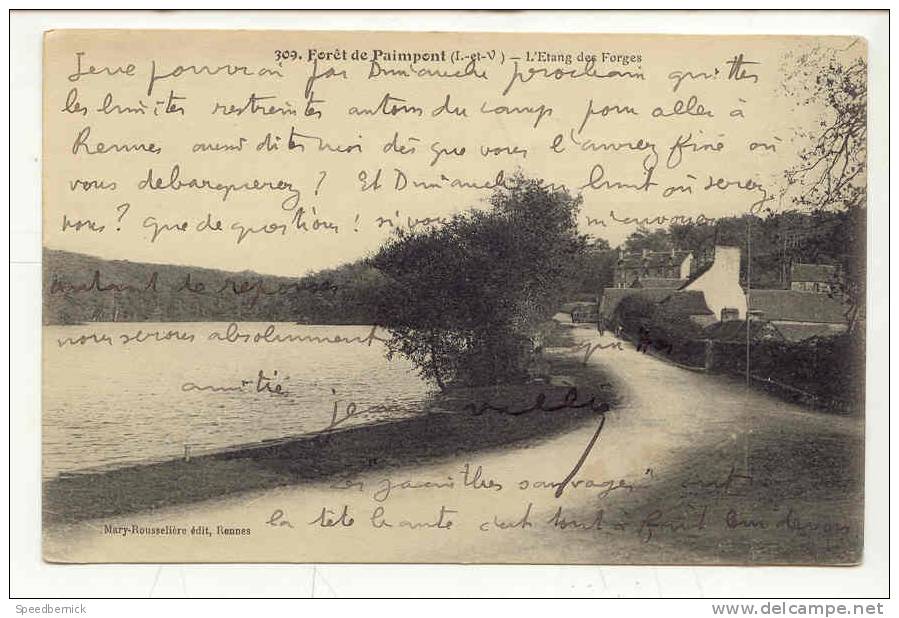 309. Forêt de Paimpont (I.-et-V) — L'Etang des Forges
Je ne pourrai pas Dimanche prochain quitter
les limites restreintes autour du camp pour aller à
Rennes aussi dites moi dès que vous l'aurez fixé où
vous débarquerez ? Et Dimanche en huit où serez
vous ? que de questions ! si vous m'envoyez
autant de réponses
nous serons absolument
amitié
jean
Les "jacinthes sauvages" ont
la tête haute c'est tout à fait bien
Mary-Rousselière édit, Rennes
Speedbernick
http://www.delcampe.net